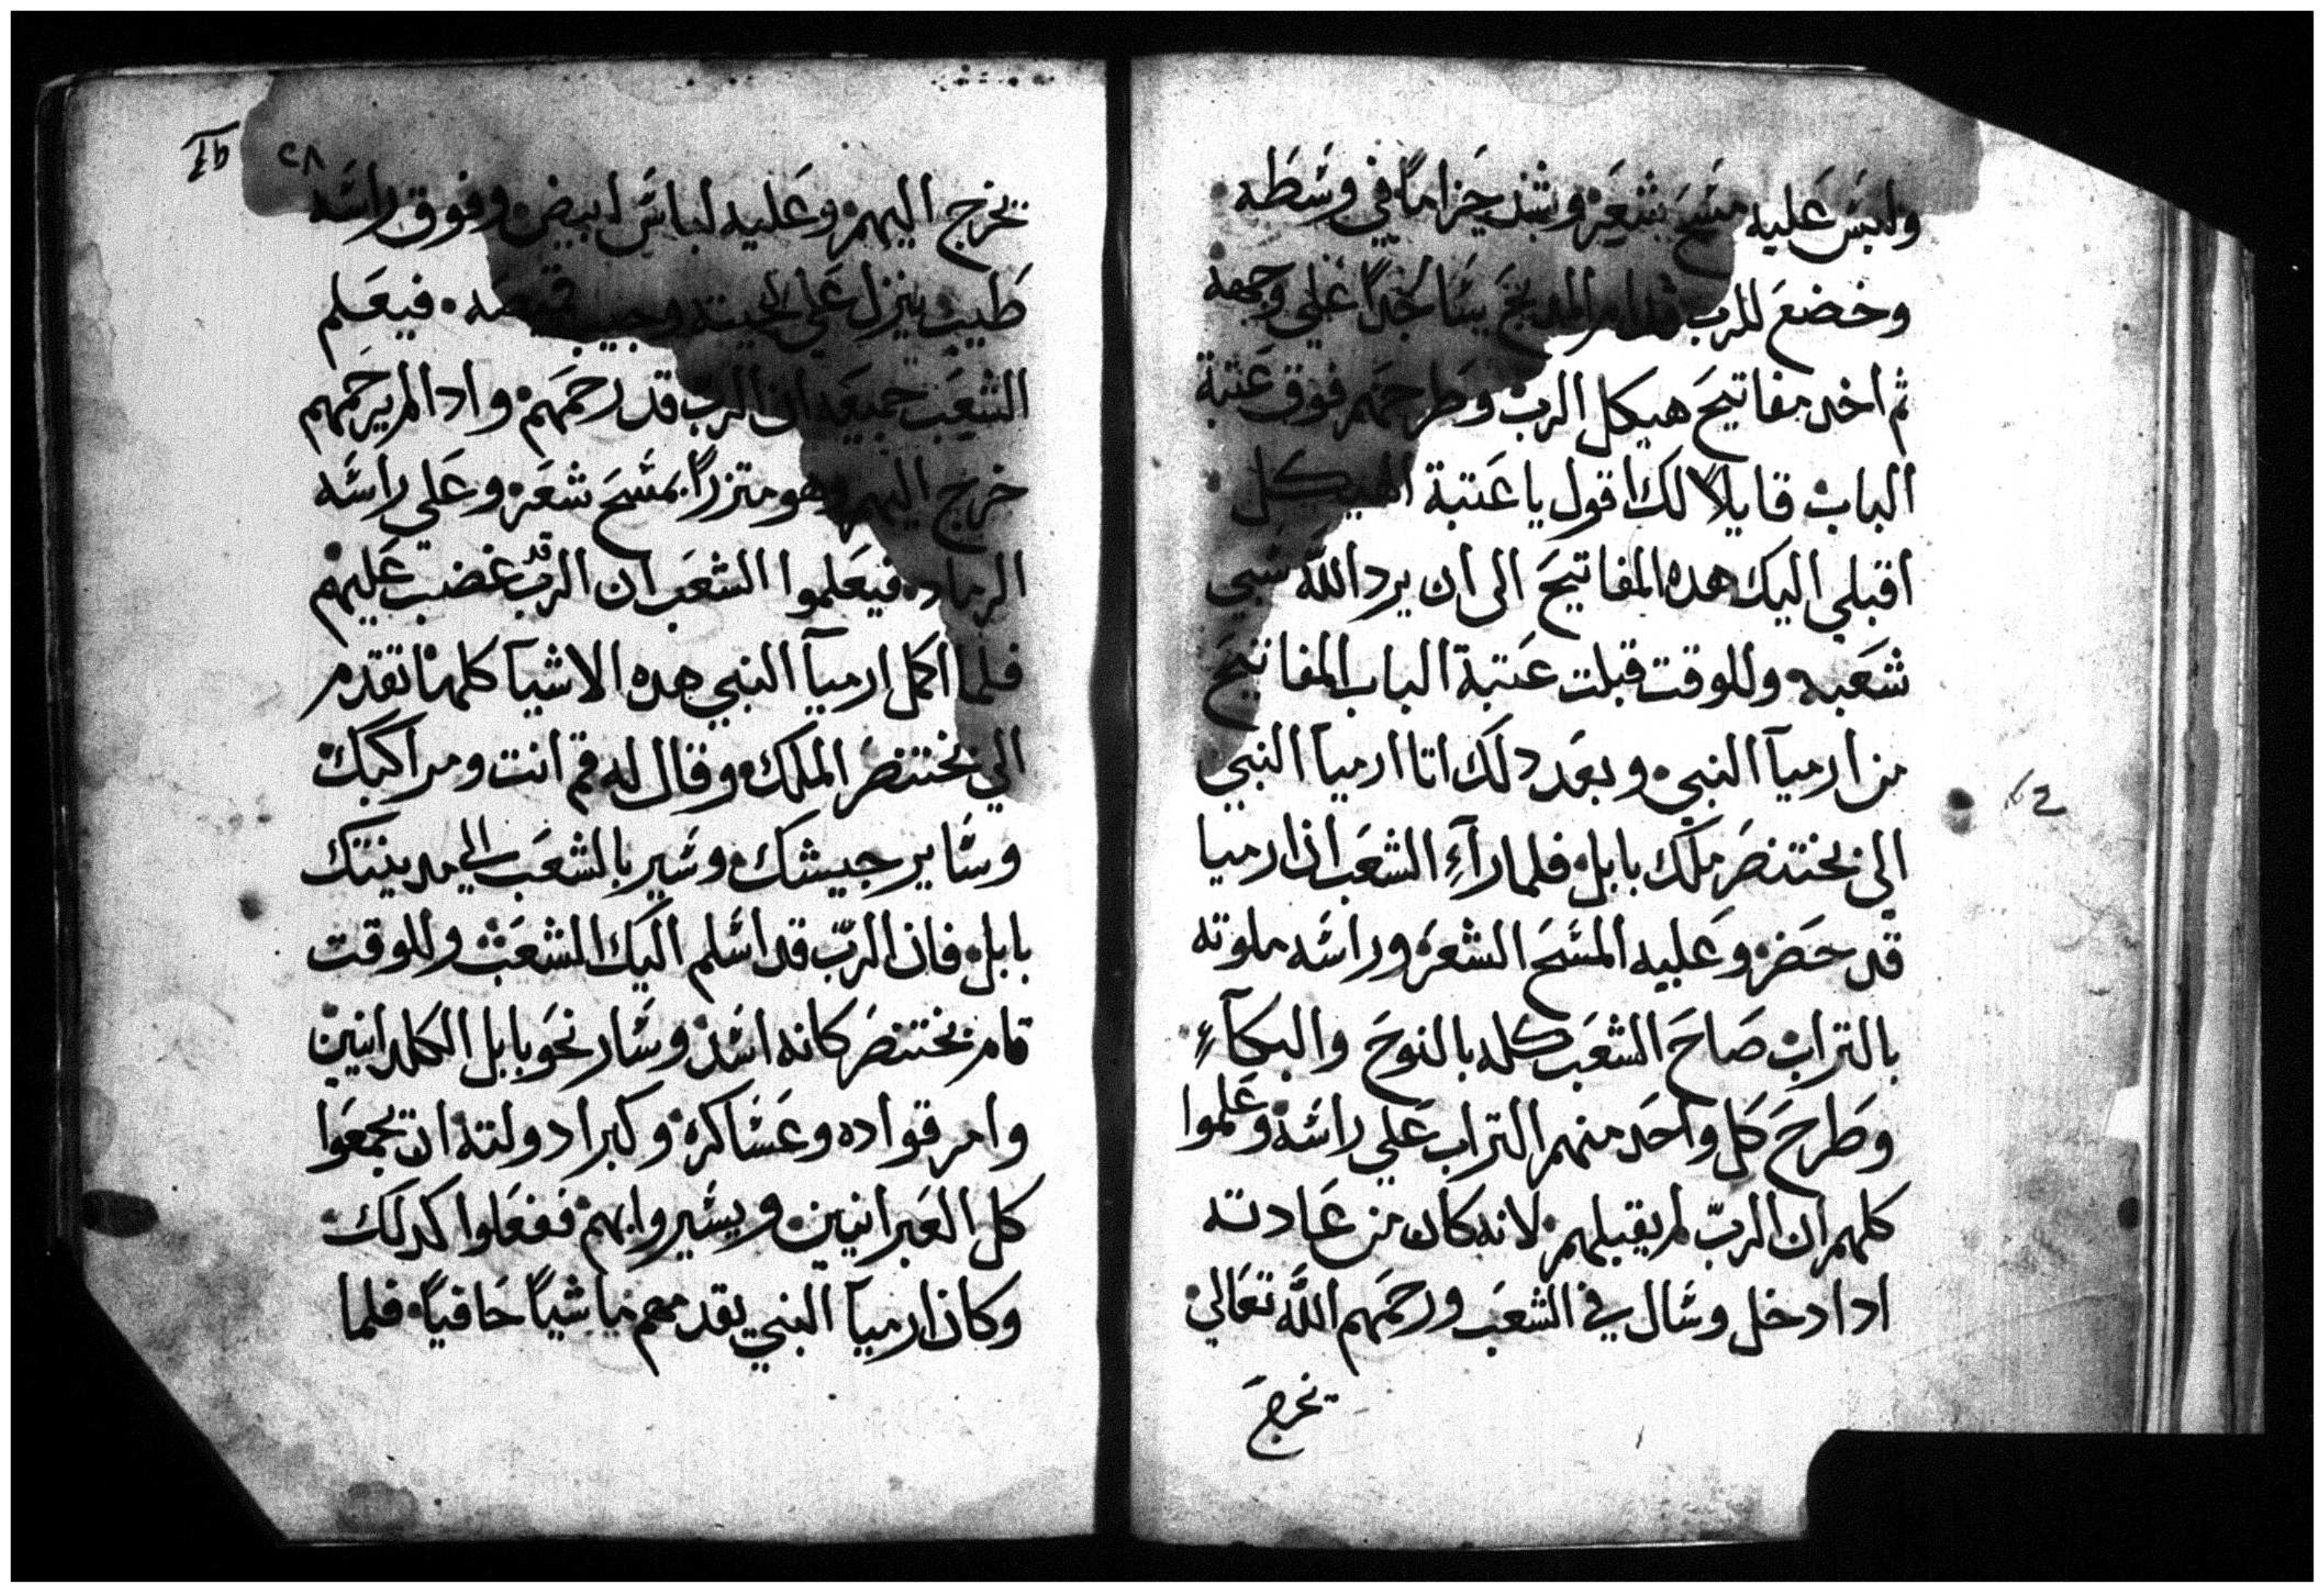 ولبس عليه مسح شعر وشد حزاما في وسطه
وخضع للرب قدام المدبح ساجدا علي وجهه
ثم اخد مفاتيح هيكل الرب وطرحهم فوق عتبة
الباب قايلا لك اقول يا عتبة الهيكل
اقبلي اليك هده المفاتيح الى ان يرد الله سبي
شعبه وللوقت قبلت عتبة الباب المفاتيح
من ارميآ النبي وبعد دلك اتا ارميآ النبي
الى بختنصر ملك بابل فلما رآء الشعب ان ارميا
قد حضر وعليه المسح الشعر وراسه ملوته
بالتراب صاح الشعب كله بالنوح والبكآء
وطرح كل واحد منهم التراب علي راسه وعلموا
كلهم ان الرب لم يقبلهم لانه كان من عادته
ادا دخل وسال في الشعب ورحمهم الله تعالي
يخرج
٢٨
يخرج اليهم وعليه لباس ابيض وفوق راسه
طيب ينزل علي لحيته وجيب قميصه فيعلم
الشعب جميعه ان الرب قد رحمهم وادا لم يرحمهم
خرج اليهم وهو متزرا بمسح شعر وعلي راسه
الرماد فيعلموا الشعب ان الرب قد غضب عليهم
فلما اكمل ارميآ النبي هده الاشيآ كلها تقدم
الي بختنصر الملك وقال له قم انت ومراكبك
وساير جيشك وسير بالشعب الي مدينتك
بابل فان الرب قد اسلم اليك الشعب وللوقت
قام بختنصر كانه اسد وسار نحو بابل الكلدانيين
وامر قواده وعساكره وكبرا دولته ان يجمعوا
كل العبرانيين ويسيروا بهم ففعلوا كدلك
وكان ارميآ النبي يقدمهم ماشيا حافيا فلما